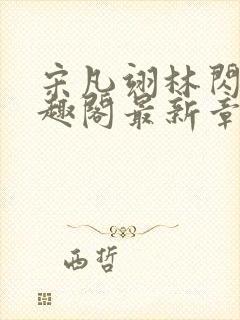 宋凡翊林閃
趣閣最新章
西哲